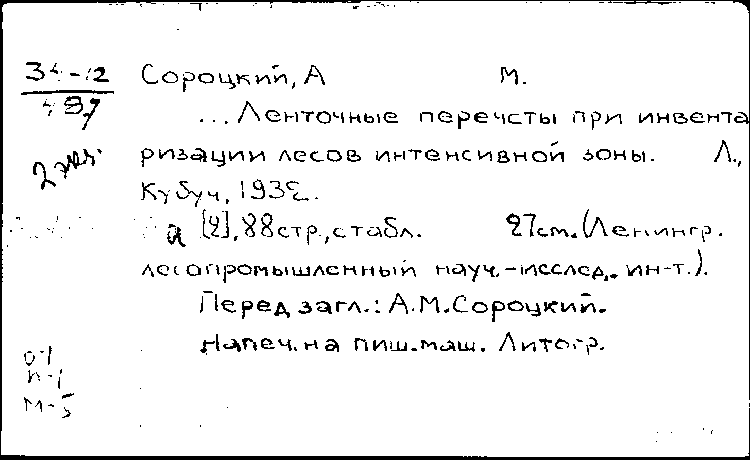 34-12 Сороцкий, А М.
487 ... Ленточные перечеты при инвента
2 экз. ризации лесов интенсивной зоны. Л.,
Кубуч, 1932.
а [2], 88 стр., с табл. 27 см. (Ленингр.
лесопромышленный науч.-исслед. ин-т.).
Перед загл.: А.М.Сороцкий.
Напеч. на пиш. маш. Литогр.
о-1
п-1
м-5